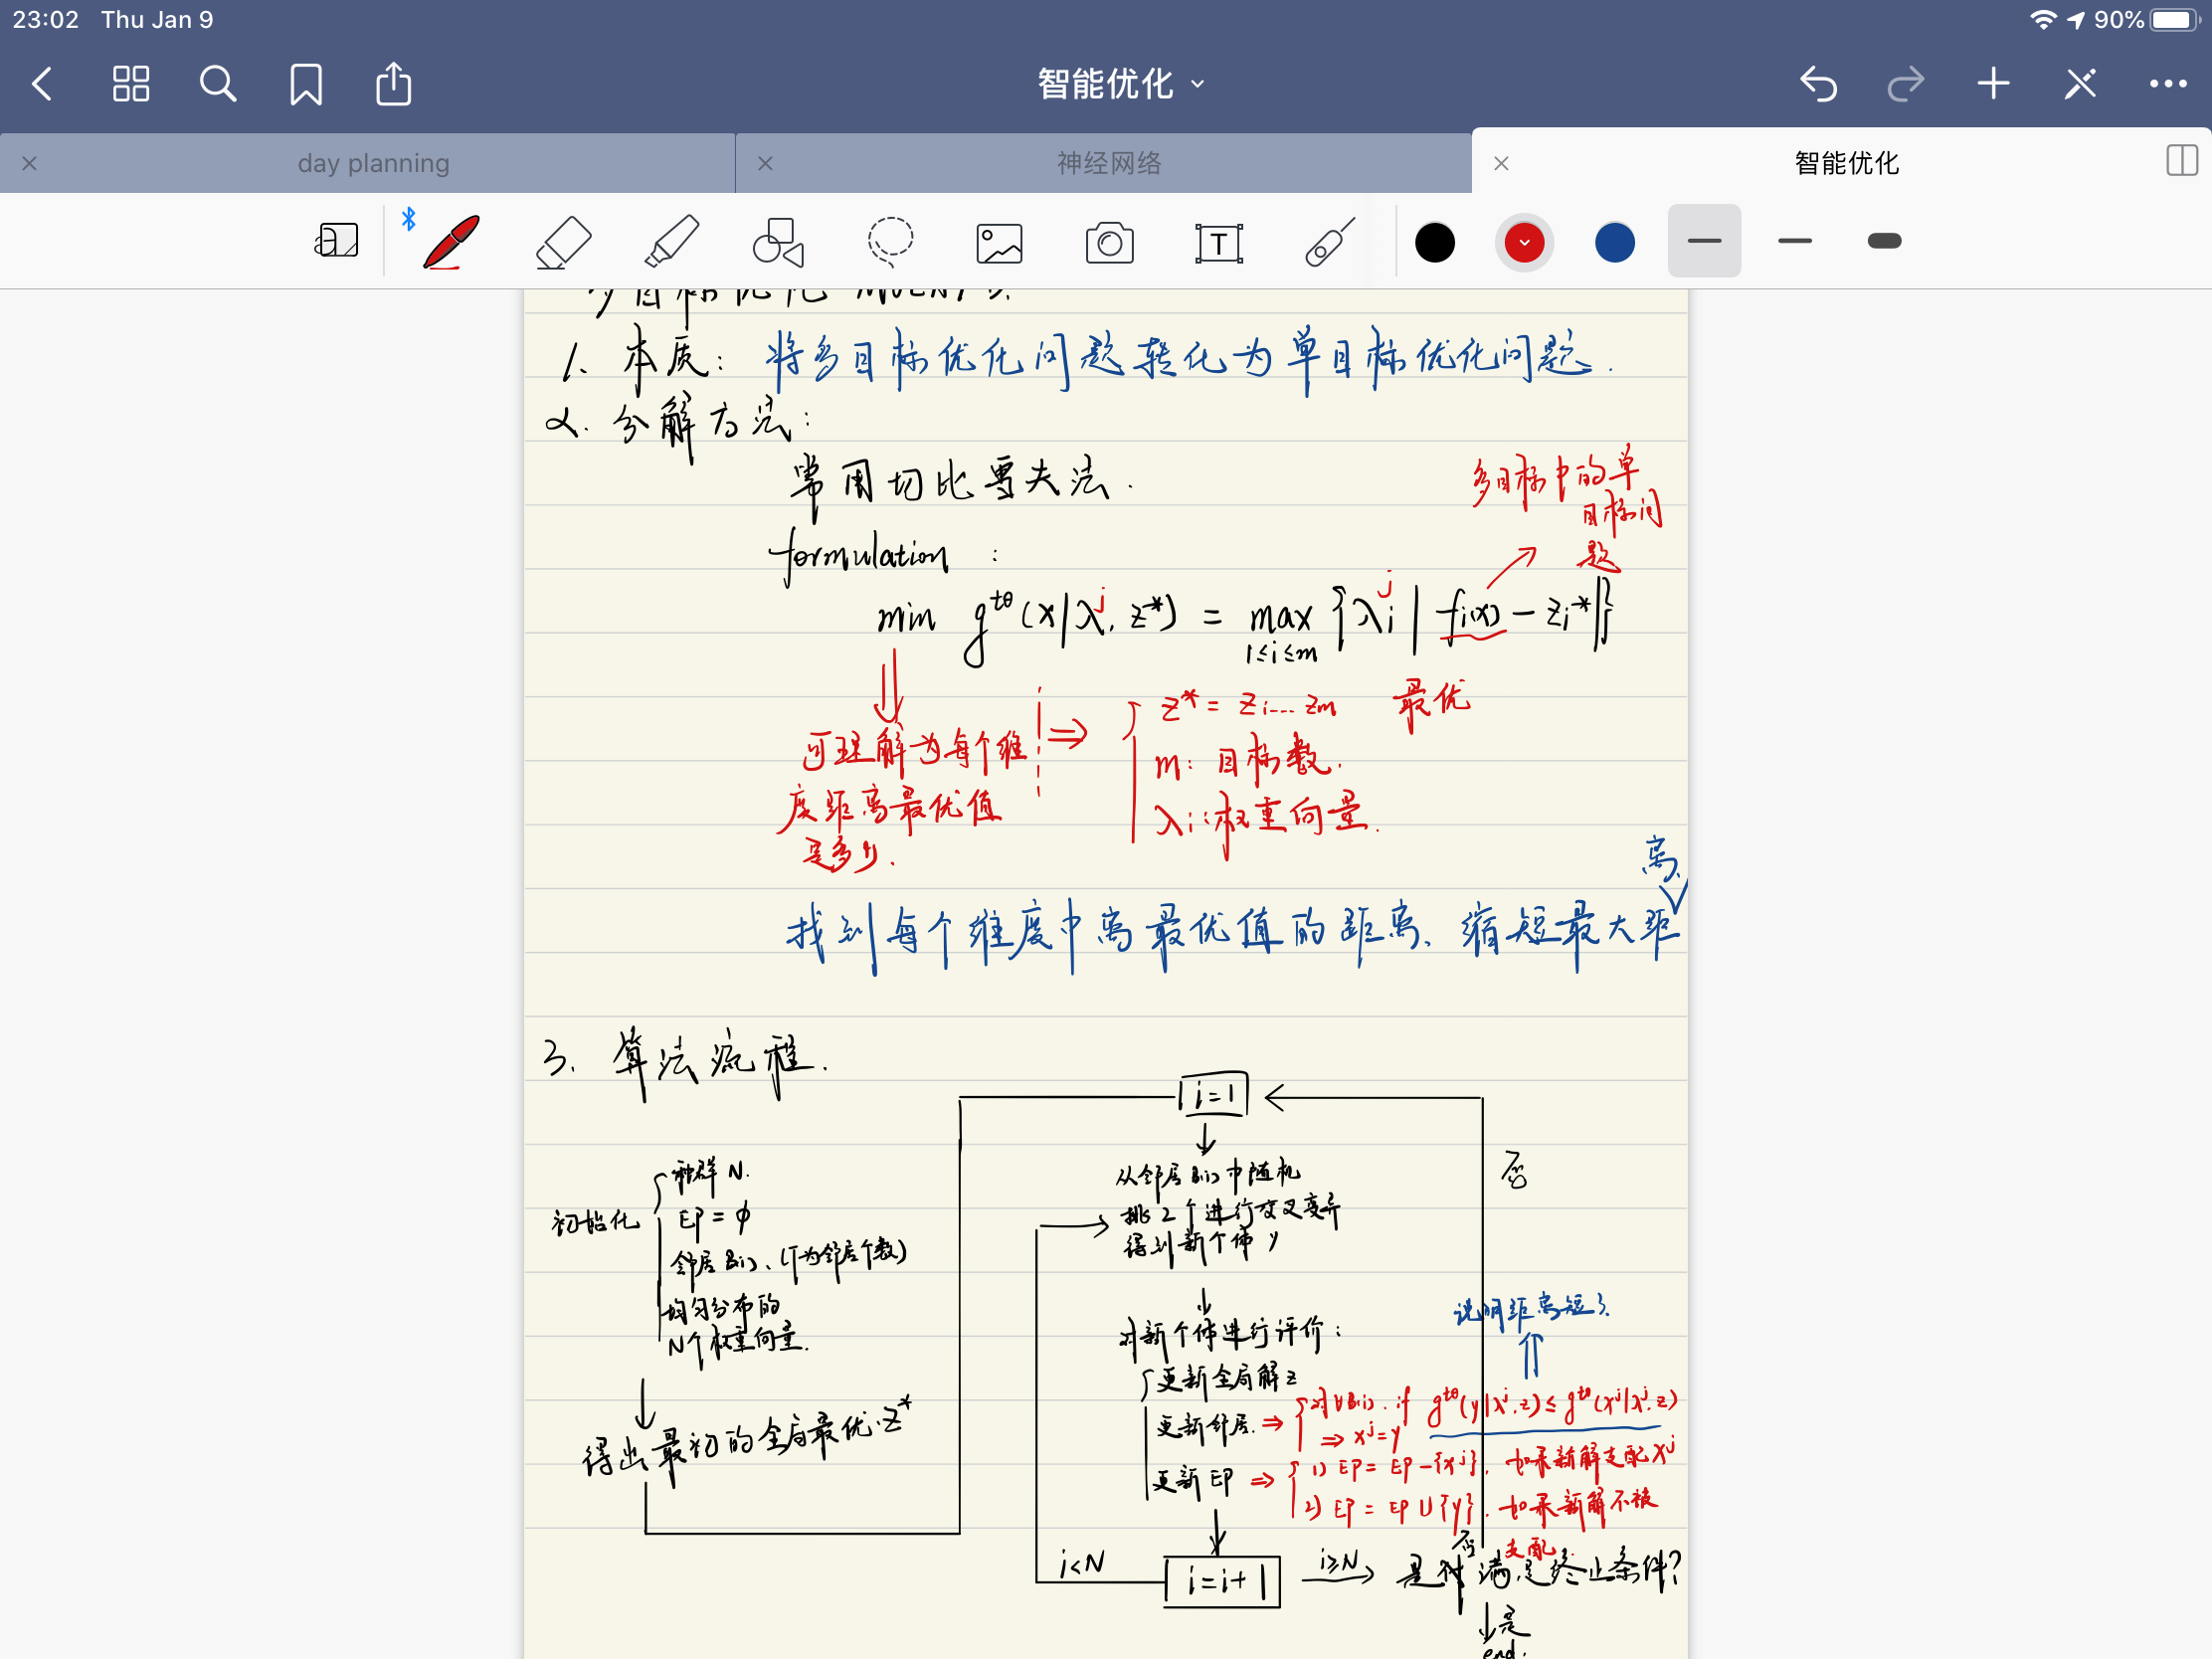 23:02 Thu Jan 9
90%
智能优化
day planning
神经网络
智能优化
T
多目标优化
1. 本质: 将多目标优化问题转化为单目标优化问题.
2. 分解方法:
常用切比雪夫法.
多目标中的单
目标问
题
formulation :
min g^te (x|λ^j, z*) = max {λi^j | fi(x) - zi* |}
1≤i≤m
可理解为每个维
度距离最优值
是多少.
⇒ z* = zi...zm 最优
m: 目标数.
λi: 权重向量.
找到每个维度中离最优值的距离、缩短最大距
离.
3. 算法流程.
i=1
初始化
种群 N.
EP = ϕ
邻居 B(i)、(T为邻居个数)
均匀分布的
N个权重向量.
得出最初的全局最优 z*
从邻居B(i)中随机
挑2个进行交叉变异
得到新个体 y
否
对新个体进行评价:
说明距离短了.
更新全局解 z
更新邻居. ⇒ 对∀B(i). if g^te(y|λ^j, z) ≤ g^te(x^j|λ^j, z)
⇒ x^j = y
更新 EP ⇒ 1) EP = EP - {x^j}. 如果新解支配 x^j
2) EP = EP ∪ {y}. 如果新解不被
支配.
否
i<N
i=i+1
i≥N
是否满足终止条件?
是
end.